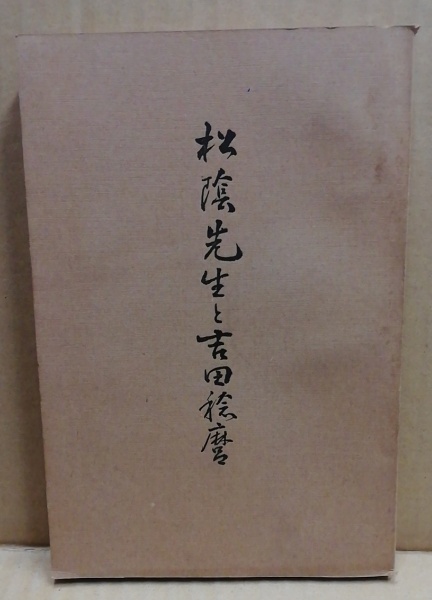 松陰先生と吉田稔麿